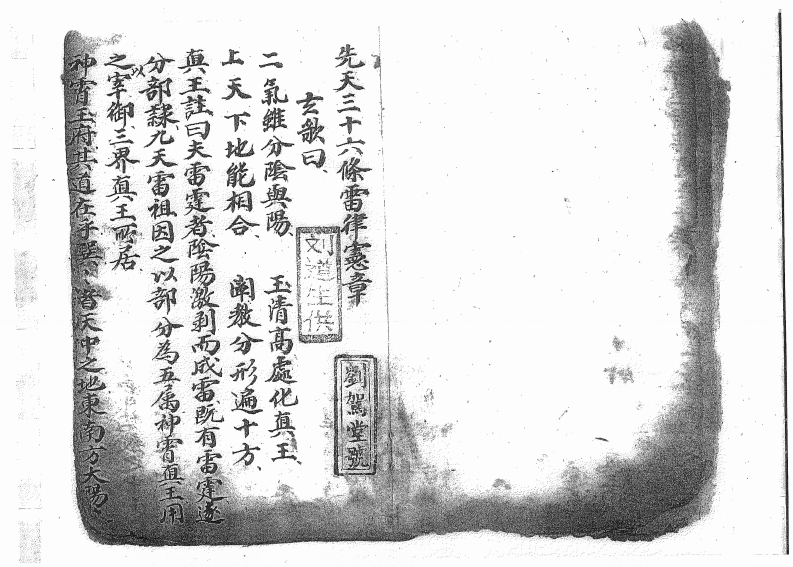 先天三十六條雷律憲章
玄歌曰
二氣維分陰與陽、 玉清高處化真王、
上天下地能相合、 闡教分形遍十方、
真王註曰夫雷霆者陰陽激剥而成雷既有雷霆遂
分部隸九天雷祖因之以部分為五属神霄真王用
以之宰御三界真王所居
神霄玉府其道在于巽、者天中之地東南方大陽
刘道生供
劉駕堂號